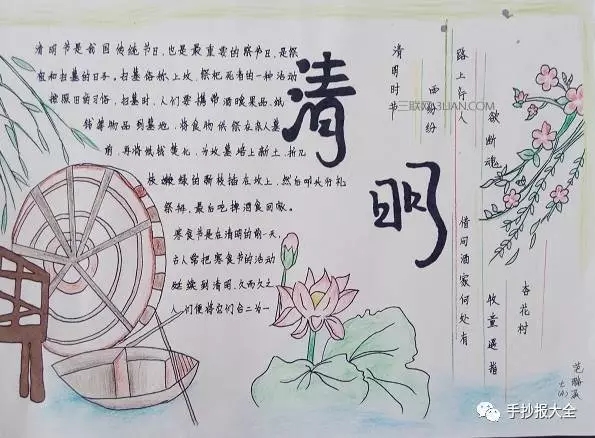 清明节是我国传统节日,也是最重要的祭节日,是祭
祖和扫墓的日子。扫墓俗称上坟,祭祀死者的一种活动
按照旧的习俗,扫墓时,人们要携带酒食果品,纸
钱等物品到墓地,将食物供祭在亲人墓
前,再将纸钱焚化,为坟墓培上新土,折几
枝嫩绿的新枝插在坟上,然后叩头行礼
祭拜,最后吃掉酒食回家。
寒食节是在清明的前一天,
古人常把寒食节的活动
延续到清明,久而久之
人们便将它们合二为一
清明
清明时节
雨纷纷
路上行人
欲断魂
借问酒家何处有
牧童遥指
杏花村
三联网 3LIAN.COM
手抄报大全